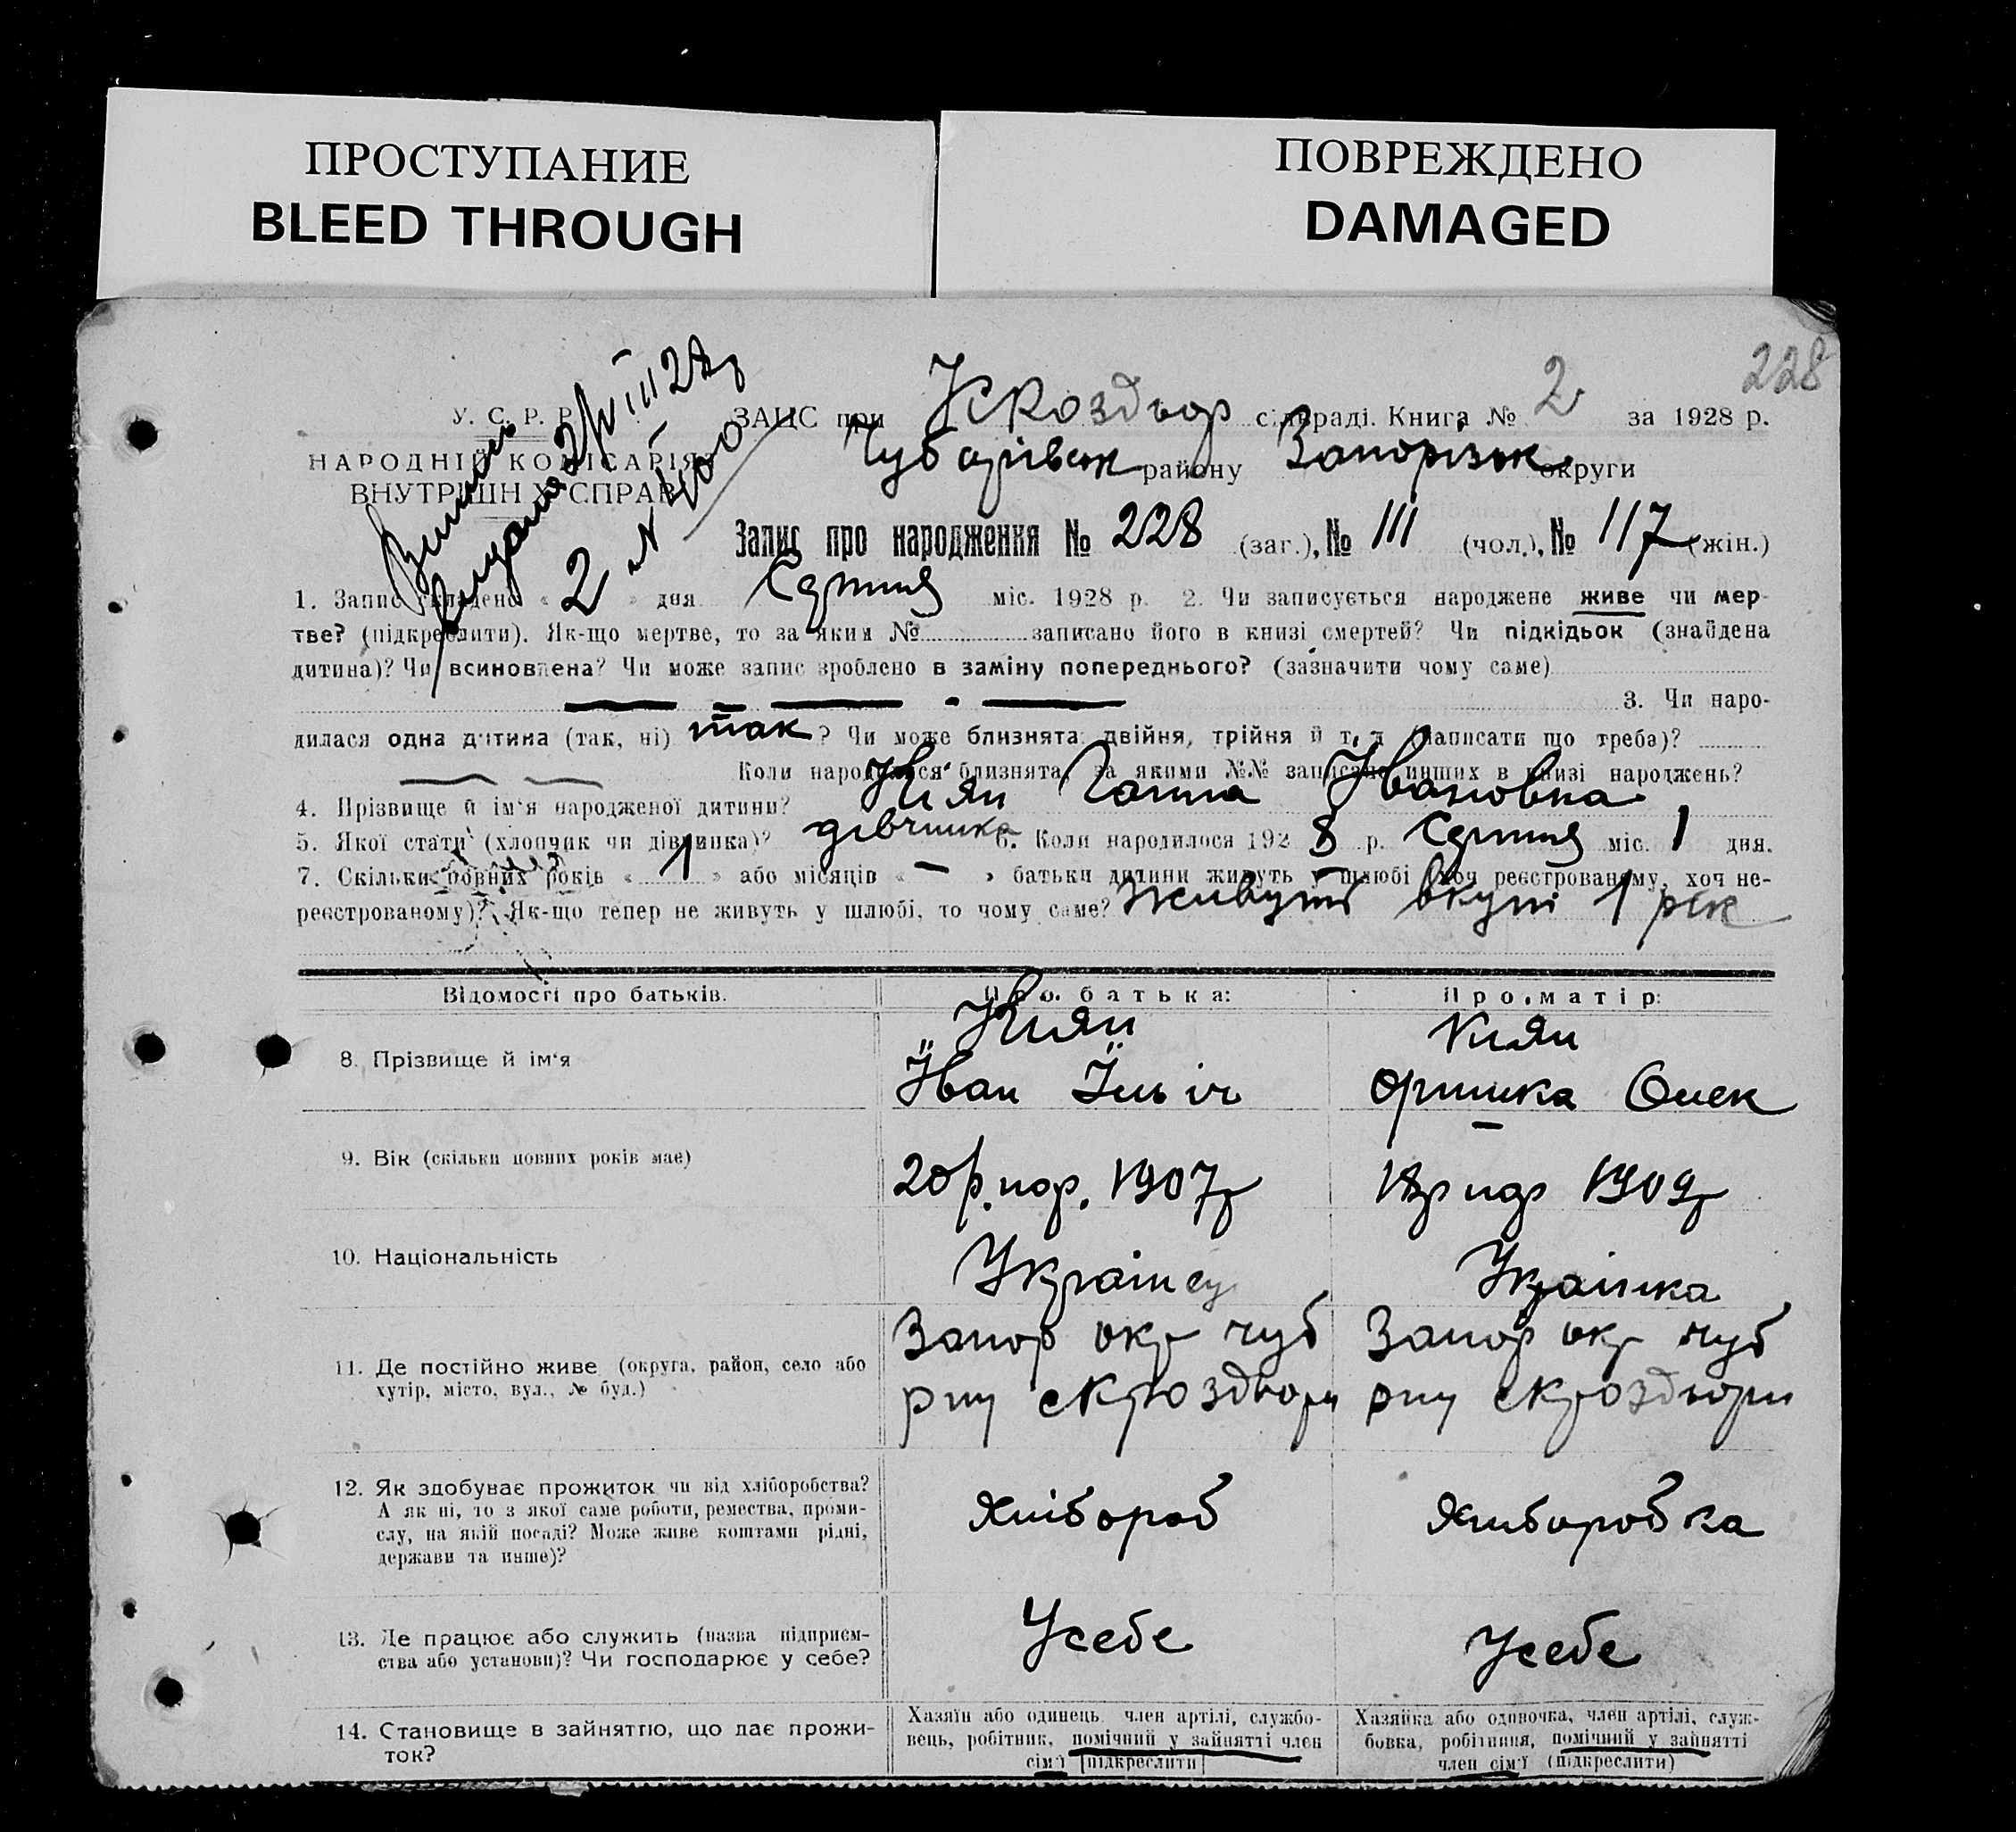 ПРОСТУПАНИЕ
BLEED THROUGH
ПОВРЕЖДЕНО
DAMAGED
228
У. С. Р. Р.
НАРОДНІЙ КОМІСАРІЯТ
ВНУТРІШНІХ СПРАВ
ЗАЦС при Кроздвор сільраді. Книга № 2 за 1928 р.
Чубарівськ району Запорізьк округи
Запис про народження № 228 (заг.), № 111 (чол.), № 117 (жін.)
1. Запис складено « 2 » дня Серпня міс. 1928 р. 2. Чи записується народжене живе чи мер-
тве? (підкреслити). Як-що мертве, то за яким № записано його в книзі смертей? Чи підкідьок (знайдена
дитина)? Чи всиновлена? Чи може запис зроблено в заміну попереднього? (зазначити чому саме)
3. Чи наро-
дилася одна дитина (так, ні) так ? Чи може близнята: двійня, трійня й т. д. (написати що треба)?
Коли народилися близнята, за якими №№ записано инших в книзі народжень?
4. Прізвище й ім'я народженої дитини? Киян Ганна Івановна
5. Якої стати (хлопчик чи дівчинка)? дівчинка 6. Коли народилося 192 8 р. Серпня міс. 1 дня.
7. Скільки повних років « 1 » або місяців « – » батьки дитини живуть у шлюбі (хоч реєстрованому, хоч не-
реєстрованому)? Як-що тепер не живуть у шлюбі, то чому саме? Живуть вкупі 1 рік
Відомості про батьків. Про батька: Про матір:
8. Прізвище й ім'я
Киян
Іван Ільіч
Киян
Оришка Олек
9. Вік (скільки повних років має)
20 р. нар. 1907 р
18 р нар 1909 р
10. Національність
Українец
Українка
11. Де постійно живе (округа, район, село або
хутір, місто, вул., № буд.)
Запор окр чуб
рну скроздвори
Запор окр чуб
рну скроздвори
12. Як здобуває прожиток чи від хліборобства?
А як ні, то з якої саме роботи, ремества, проми-
слу, на якій посаді? Може живе коштами рідні,
держави та инше)?
Хлібороб
Хлиборобка
13. Де працює або служить (назва підприєм-
ства або установи)? Чи господарює у себе?
Усебе
Усебе
14. Становище в зайняттю, що дає прожи-
ток?
Хазяїн або одинець, член артілі, службо-
вець, робітник, помічний у зайнятті член
сім'ї (підкреслити)
Хазяйка або одиночка, член артілі, служ-
бовка, робітниця, помічний у зайнятті
член сім'ї (підкреслити)